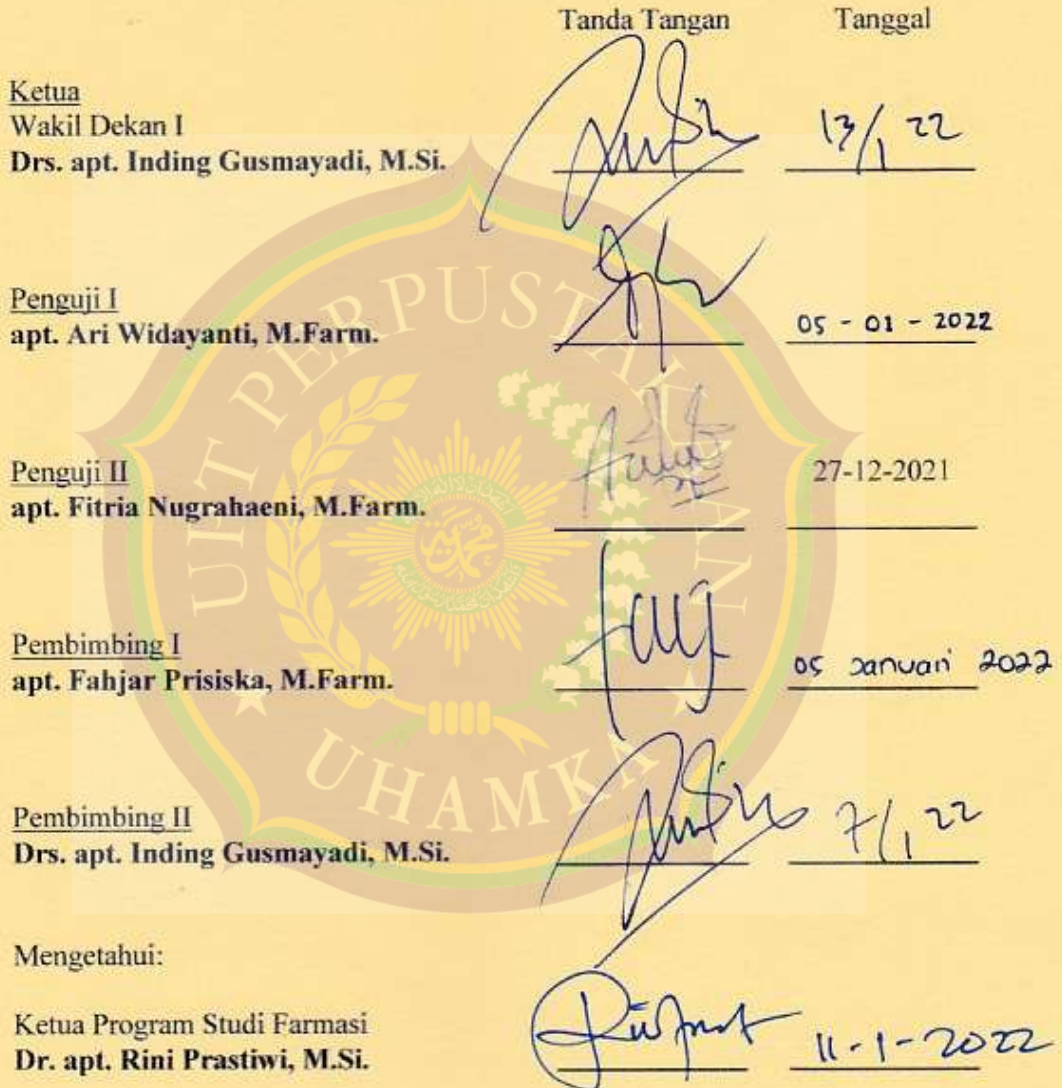 Tanda Tangan Tanggal
Ketua
Wakil Dekan I
Drs. apt. Inding Gusmayadi, M.Si.
13/1 22
Penguji I
apt. Ari Widayanti, M.Farm.
05 - 01 - 2022
Penguji II
apt. Fitria Nugrahaeni, M.Farm.
27-12-2021
Pembimbing I
apt. Fahjar Prisiska, M.Farm.
05 Januari 2022
Pembimbing II
Drs. apt. Inding Gusmayadi, M.Si.
7/1 22
Mengetahui:
Ketua Program Studi Farmasi
Dr. apt. Rini Prastiwi, M.Si.
11-1-2022
UIT PERPUSTAKAAN
UHAMKA